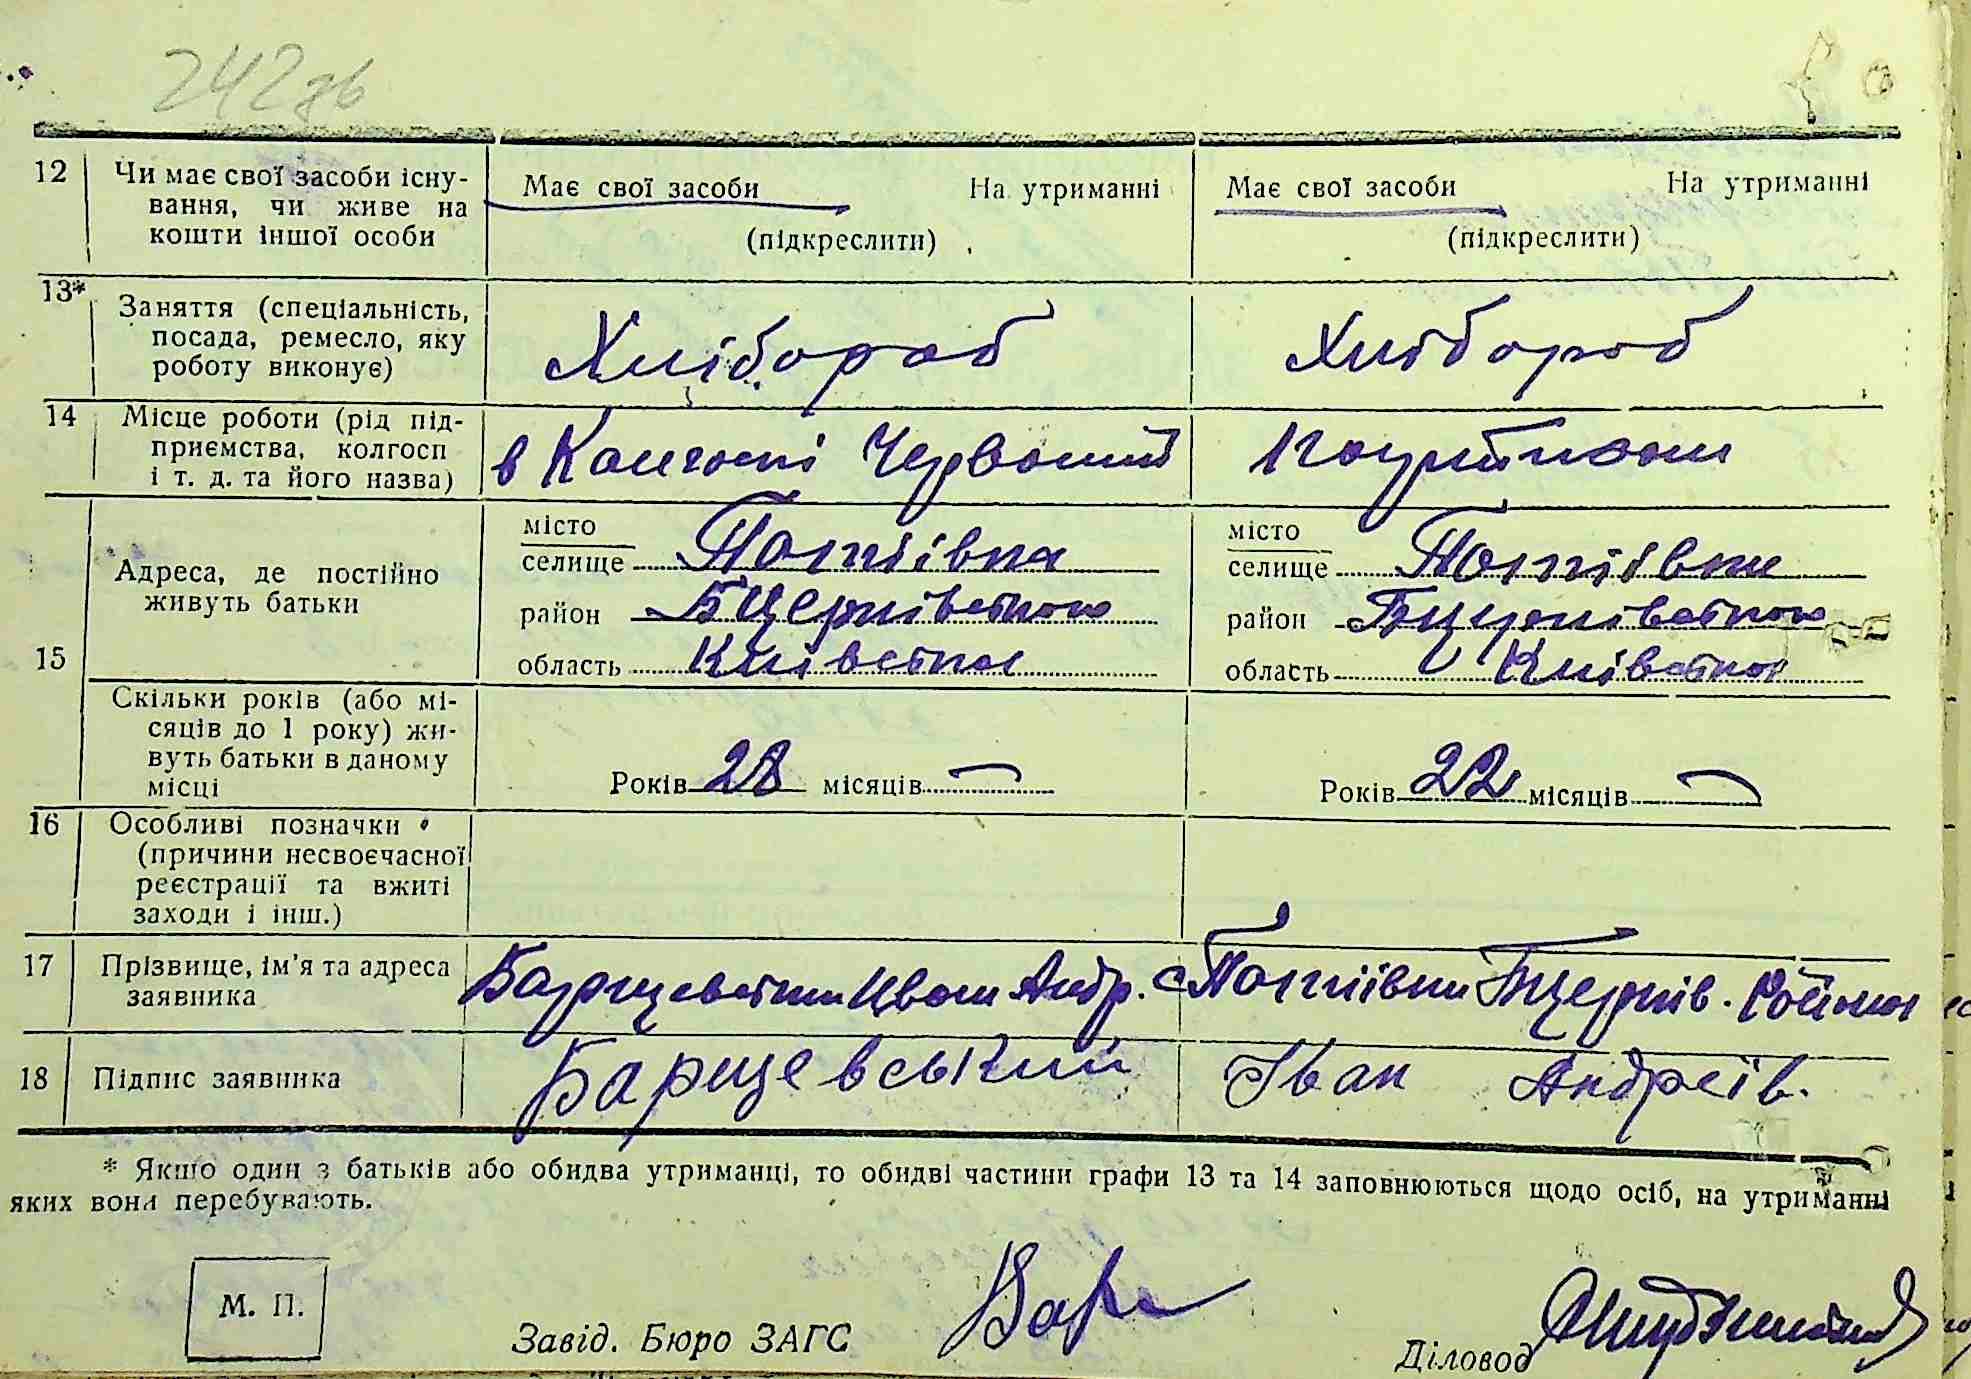 242зв
12 Чи має свої засоби існу-
вання, чи живе на
кошти іншої особи
Має свої засоби На утриманні
(підкреслити)
Має свої засоби На утриманні
(підкреслити)
13* Заняття (спеціальність,
посада, ремесло, яку
роботу виконує)
Хлібороб
Хлібороб
14 Місце роботи (рід під-
приємства, колгосп
і т. д. та його назва)
в Колгоспі Червоний
15 Адреса, де постійно
живуть батьки
місто
селище Потіївка
район Бцерківського
область Київська
місто
селище Потіївки
район Бцерківського
область Київської
Скільки років (або мі-
сяців до 1 року) жи-
вуть батьки в даному
місці
Років 28 місяців —
Років 22 місяців —
16 Особливі позначки
(причини несвоєчасної
реєстрації та вжиті
заходи і інш.)
17 Прізвище, ім'я та адреса
заявника
Барщевский Иван Андр. с Потіївки Бцерків. района
18 Підпис заявника
Барщевський Іван Андреїв.
* Якщо один з батьків або обидва утриманці, то обидві частини графи 13 та 14 заповнюються щодо осіб, на утриманні
яких вони перебувають.
М. П.
Завід. Бюро ЗАГС
Діловод